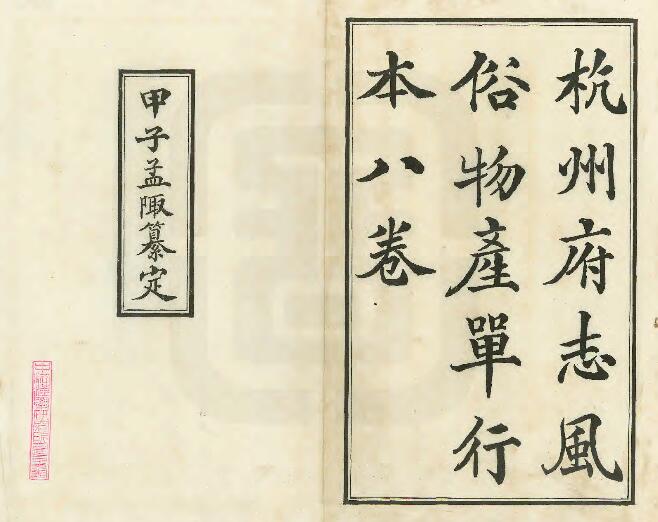 杭州府志風
俗物產單行
本八卷
甲子孟陬纂定